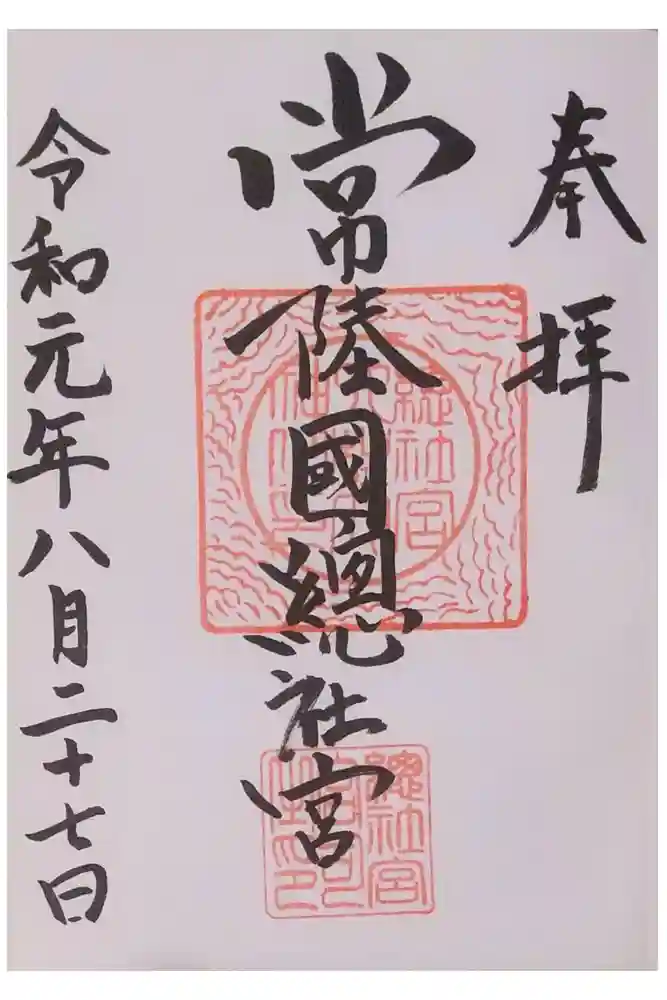 奉拝
常陸國總社宮
令和元年八月二十七日
總社宮